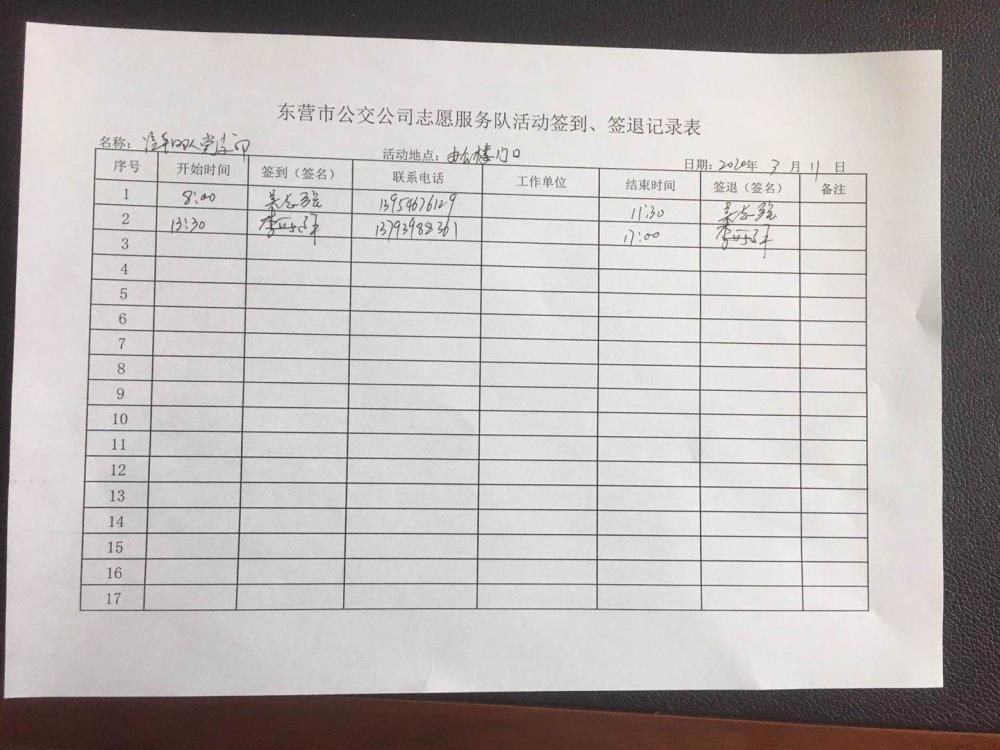 东营市公交公司志愿服务队活动签到、签退记录表
名称： 汽车四队党支部 活动地点： 办公楼门口 日期：2020年 3 月 11 日
序号 开始时间 签到（签名） 联系电话 工作单位 结束时间 签退（签名） 备注
1 8:00 13954676129 11:30
2 13:30 13793988361 17:00
3
4
5
6
7
8
9
10
11
12
13
14
15
16
17